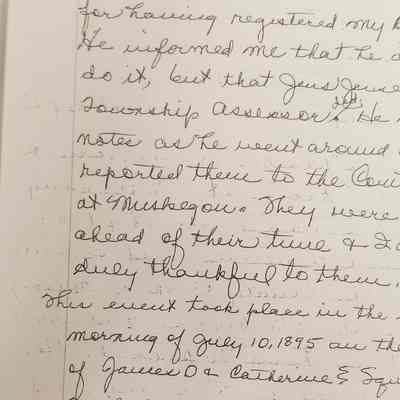 for having registered my
He informed me that he
do it, but that Jens Jense
Township Assessor did, He
notes as he went around
reported them to the Coun
at Muskegon. They were
ahead of their time & I a
duly thankful to them.
This event took place in the
morning of July 10, 1895 on the
of James O & Catherine E Squi